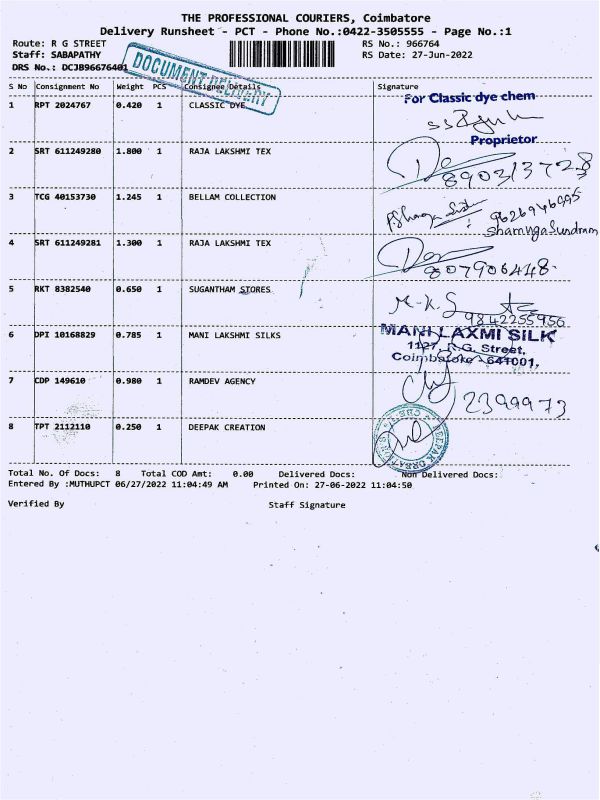 THE PROFESSIONAL COURIERS, Coimbatore
Delivery Runsheet - PCT - Phone No.:0422-3505555 - Page No.:1
Route: R G STREET
RS No.: 966764
Staff: SABAPATHY
RS Date: 27-Jun-2022
DRS No.: DCJB96676401
DOCUMENT DELIVERY
S No Consignment No Weight PCS Consignee Details Signature
1 RPT 2024767 0.420 1 CLASSIC DYE
For Classic dye chem
Proprietor
2 SRT 611249280 1.800 1 RAJA LAKSHMI TEX
890313728
3 TCG 40153730 1.245 1 BELLAM COLLECTION
9626946995
4 SRT 611249281 1.300 1 RAJA LAKSHMI TEX
807906448
5 RKT 8382540 0.650 1 SUGANTHAM STORES
M.K.S
9842255956
6 DPI 10168829 0.785 1 MANI LAKSHMI SILKS
MANI LAXMI SILK
1127, R.G. Street,
Coimbatore - 641001,
7 CDP 149610 0.980 1 RAMDEV AGENCY
2399973
8 TPT 2112110 0.250 1 DEEPAK CREATION
Total No. Of Docs: 8 Total COD Amt: 0.00 Delivered Docs: Non Delivered Docs:
Entered By :MUTHUPCT 06/27/2022 11:04:49 AM Printed On: 27-06-2022 11:04:50
Verified By Staff Signature